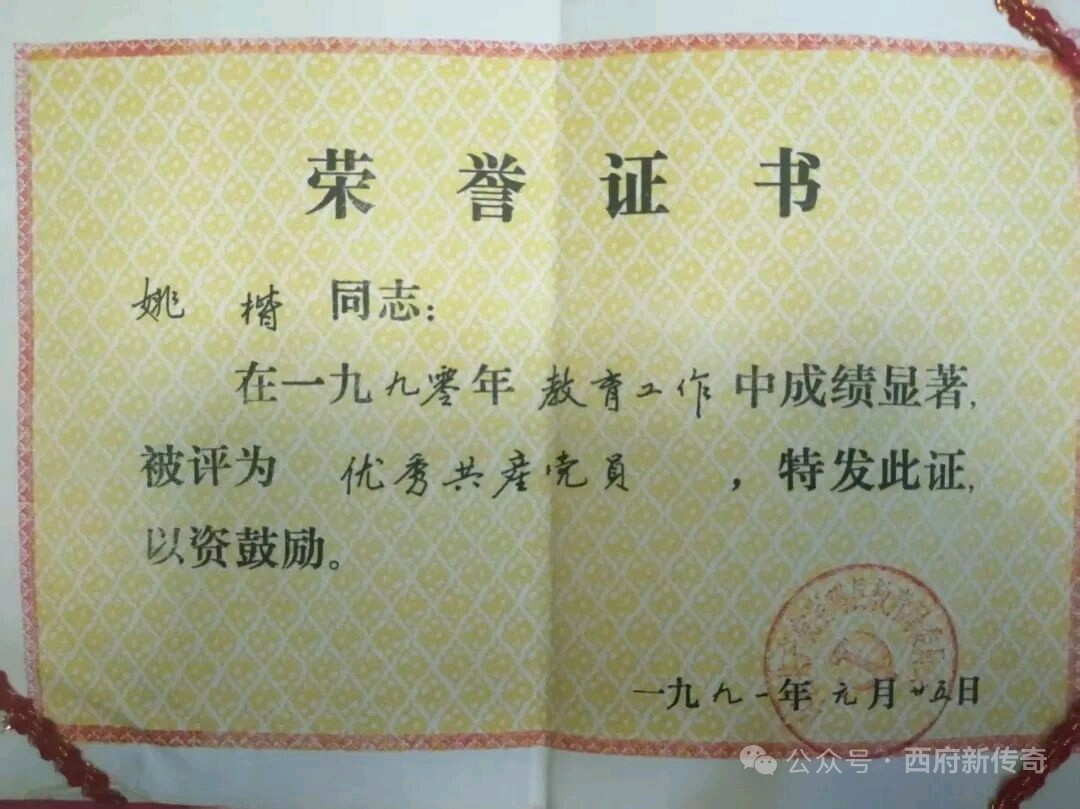 荣誉证书
姚楷同志：
在一九九零年教育工作中成绩显著，
被评为优秀共产党员，特发此证，
以资鼓励。
一九九一年元月廿五日
公众号·西府新传奇